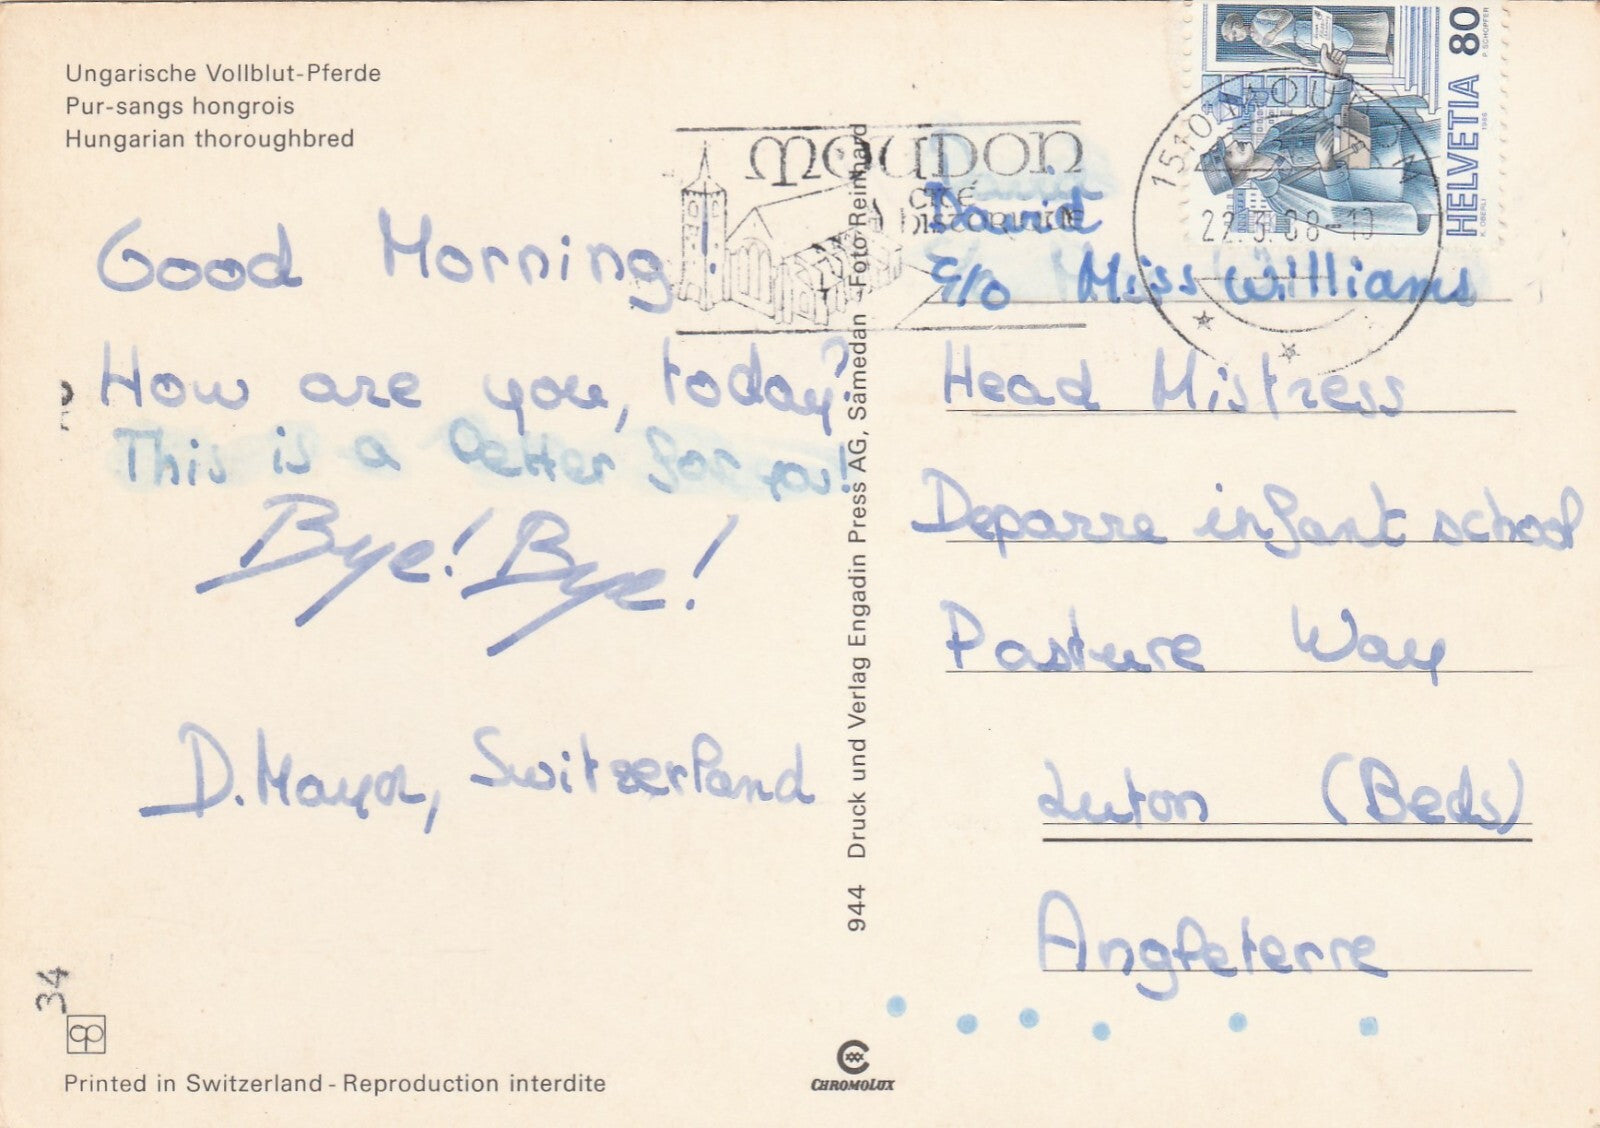 Ungarische Vollblut-Pferde
Pur-sangs hongrois
Hungarian thoroughbred
Good Morning.
How are you, today?
This is a letter for you!
Bye! Bye!
D. Mayor, Switzerland
34
Printed in Switzerland - Reproduction interdite
944 Druck und Verlag Engadin Press AG, Samedan - Foto Reinhard
CHROMOLUX
MOUDON
CITÉ
HISTORIQUE
HELVETIA 80
K. OBERLI 1986 P. SCHOPFER
1510 MOUDON
22.3.88-10
David
c/o Miss Williams
Head Mistress
Deparre infant school
Pasture Way
Luton (Beds)
Angleterre